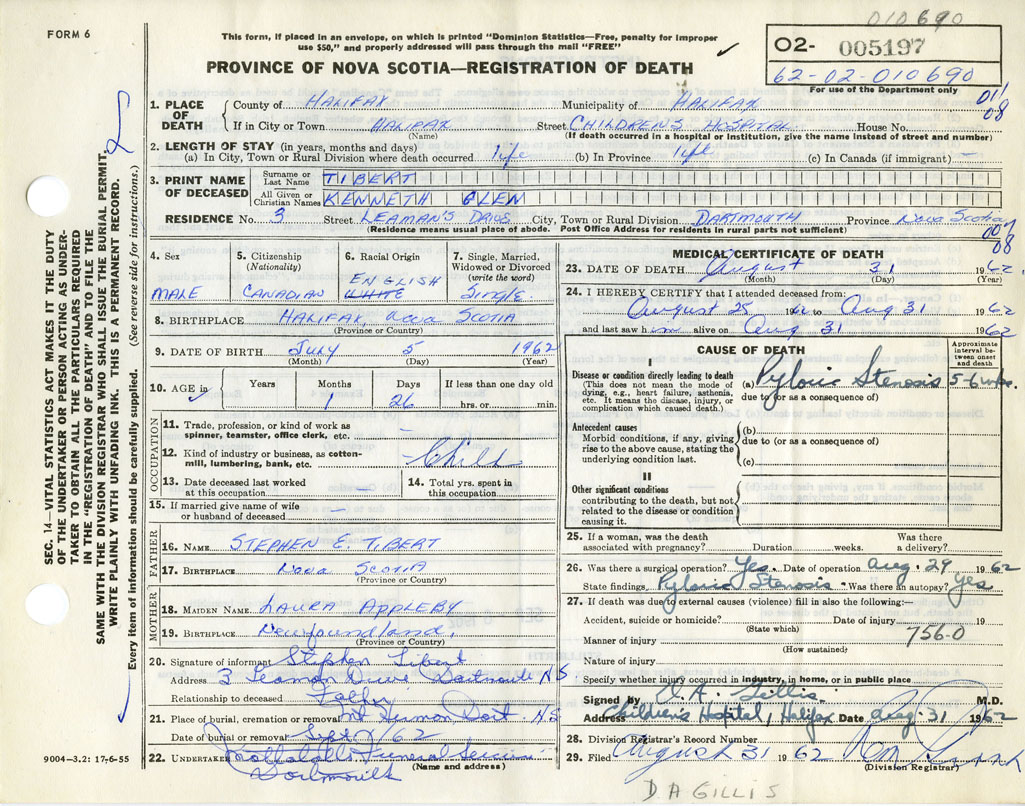 010690
FORM 6
This form, if placed in an envelope, on which is printed "Dominion Statistics—Free, penalty for improper
use $50," and properly addressed will pass through the mail "FREE"
PROVINCE OF NOVA SCOTIA—REGISTRATION OF DEATH
02- 005197
62-02-010690
For use of the Department only
SEC. 14—VITAL STATISTICS ACT MAKES IT THE DUTY
OF THE UNDERTAKER OR PERSON ACTING AS UNDER-
TAKER TO OBTAIN ALL THE PARTICULARS REQUIRED
IN THE "REGISTRATION OF DEATH" AND TO FILE THE
SAME WITH THE DIVISION REGISTRAR WHO SHALL ISSUE THE BURIAL PERMIT.
WRITE PLAINLY WITH UNFADING INK. THIS IS A PERMANENT RECORD.
Every item of information should be carefully supplied. (See reverse side for instructions.)
1. PLACE OF DEATH County of HALIFAX Municipality of HALIFAX
If in City or Town HALIFAX Street CHILDREN'S HOSPITAL House No.
(Name) (If death occurred in a hospital or institution, give the name instead of street and number)
08
2. LENGTH OF STAY (in years, months and days)
(a) In City, Town or Rural Division where death occurred life (b) In Province life (c) In Canada (if immigrant) —
3. PRINT NAME OF DECEASED
Surname or Last Name TIBERT
All Given or Christian Names KENNETH GLEN
RESIDENCE No. 3 Street LEAMAN'S DRIVE City, Town or Rural Division DARTMOUTH Province Nova Scotia
(Residence means usual place of abode. Post Office Address for residents in rural parts not sufficient)
08
4. Sex MALE
5. Citizenship (Nationality) CANADIAN
6. Racial Origin ENGLISH WHITE
7. Single, Married, Widowed or Divorced (write the word) Single
8. BIRTHPLACE HALIFAX, Nova SCOTIA
(Province or Country)
9. DATE OF BIRTH July 5 1962
(Month) (Day) (Year)
10. AGE in Years Months Days If less than one day old
1 26 hrs. or min.
OCCUPATION
11. Trade, profession, or kind of work as spinner, teamster, office clerk, etc. —
12. Kind of industry or business, as cotton-mill, lumbering, bank, etc. Child
13. Date deceased last worked at this occupation —
14. Total yrs. spent in this occupation
15. If married give name of wife or husband of deceased —
FATHER
16. NAME STEPHEN E. TIBERT
17. BIRTHPLACE Nova SCOTIA
(Province or Country)
MOTHER
18. MAIDEN NAME LAURA APPLEBY
19. BIRTHPLACE Newfoundland,
(Province or Country)
20. Signature of informant Stephen Tibert
Address 3 Leaman Drive Dartmouth N.S.
Relationship to deceased Father
21. Place of burial, cremation or removal Mt Hermon Dart. N.S.
Date of burial or removal Sept 1/62
22. UNDERTAKER Funeral Service
Dartmouth
(Name and address)
9004-3.2: 17-6-55
MEDICAL CERTIFICATE OF DEATH
23. DATE OF DEATH August 31 1962
(Month) (Day) (Year)
24. I HEREBY CERTIFY that I attended deceased from:
August 25 1962 to Aug 31 1962
and last saw him alive on Aug 31 1962
CAUSE OF DEATH
Approximate interval between onset and death
I
Disease or condition directly leading to death
(This does not mean the mode of dying, e.g., heart failure, asthenia, etc. It means the disease, injury, or complication which caused death.)
(a) Pyloric Stenosis 5-6 wks.
due to (or as a consequence of)
Antecedent causes
Morbid conditions, if any, giving rise to the above cause, stating the underlying condition last.
(b)
due to (or as a consequence of)
(c)
II
Other significant conditions
contributing to the death, but not related to the disease or condition causing it.
25. If a woman, was the death associated with pregnancy? Duration weeks. Was there a delivery?
26. Was there a surgical operation? Yes. Date of operation Aug. 29 1962
State findings Pyloric Stenosis Was there an autopsy? Yes
27. If death was due to external causes (violence) fill in also the following:—
Accident, suicide or homicide? Date of injury 19
(State which)
756-0
Manner of injury
(How sustained)
Nature of injury
Specify whether injury occurred in industry, in home, or in public place
Signed by D. A. Gillis M.D.
Address Children's Hospital, Halifax Date Aug. 31 1962
28. Division Registrar's Record Number
29. Filed August 31 1962
(Division Registrar)
D A GILLIS